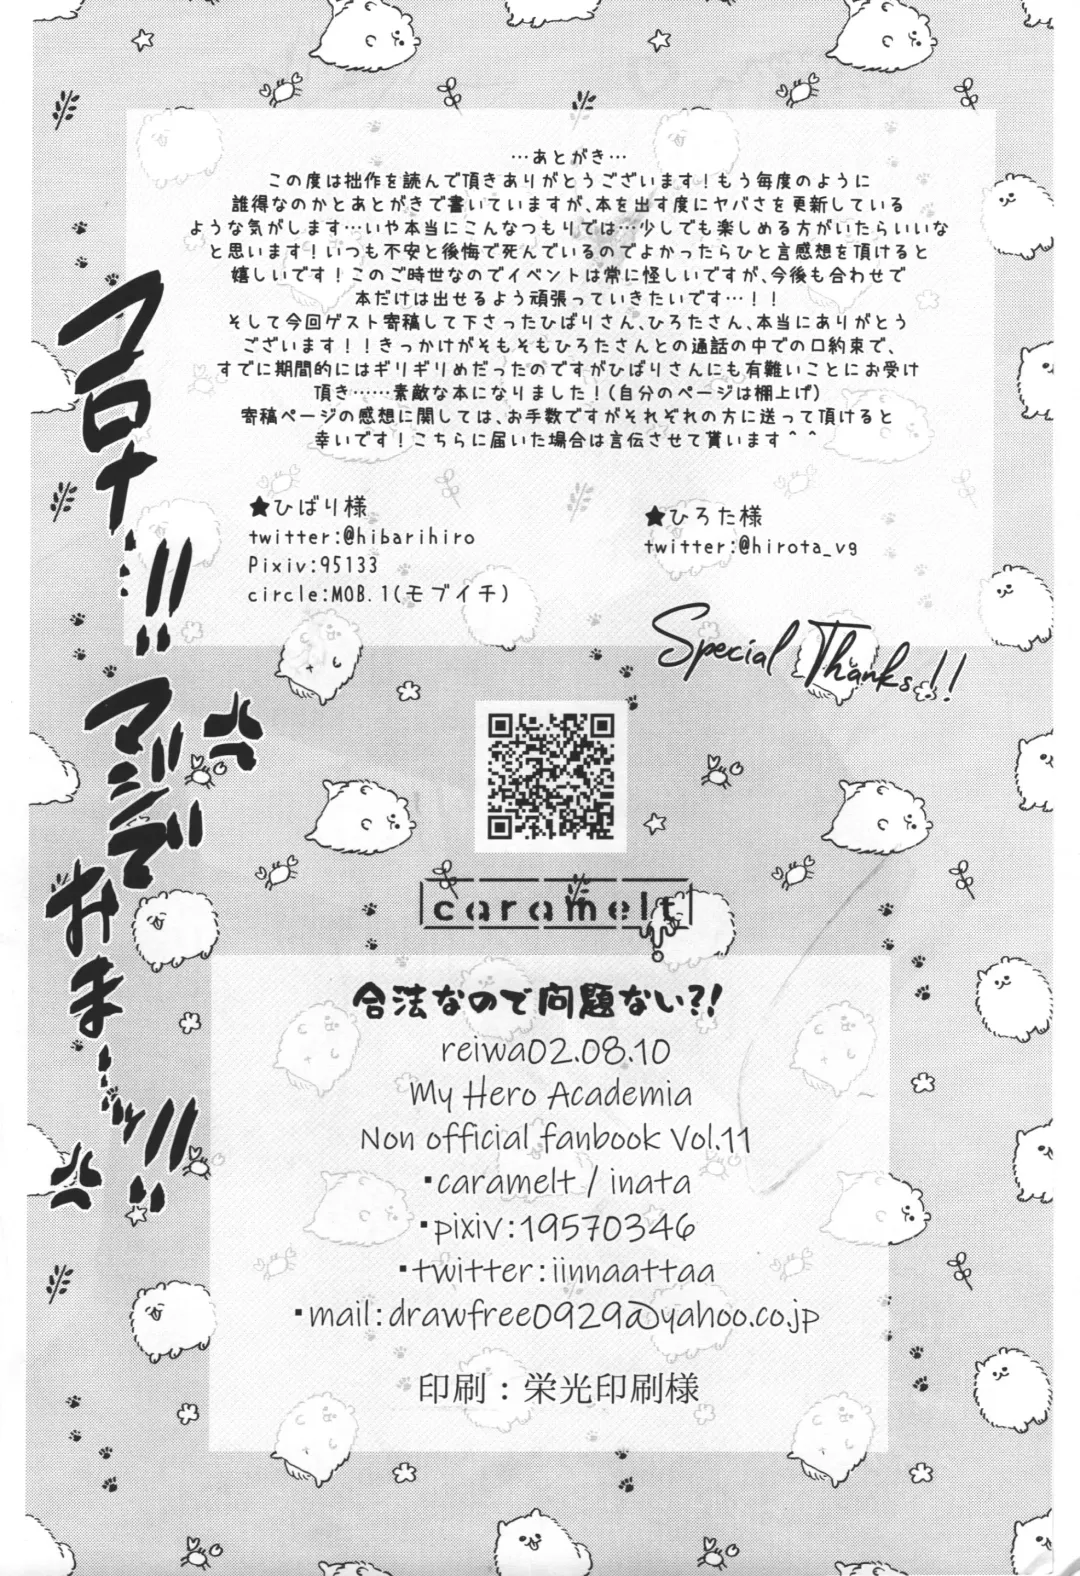 …あとがき…
この度は拙作を読んで頂きありがとうございます！もう毎度のように
誰得なのかとあとがきで書いていますが、本を出す度にヤバさを更新している
ような気がします…いや本当にこんなつもりでは…少しでも楽しめる方がいたらいいな
と思います！いつも不安と後悔で死んでいるのでよかったらひと言感想を頂けると
嬉しいです！このご時世なのでイベントは常に怪しいですが、今後も合わせで
本だけは出せるよう頑張っていきたいです…！！
そして今回ゲスト寄稿して下さったひばりさん、ひろたさん、本当にありがとう
ございます！！きっかけがそもそもひろたさんとの通話の中での口約束で、
すでに期間的にはギリギリめだったのですがひばりさんにも有難いことにお受け
頂き……素敵な本になりました！(自分のページは棚上げ)
寄稿ページの感想に関しては、お手数ですがそれぞれの方に送って頂けると
幸いです！こちらに届いた場合は言伝させて貰います＾＾
★ひばり様
twitter:@hibarihiro
Pixiv:95133
circle:MOB.1(モブイチ)
★ひろた様
twitter:@hirota_vg
Special Thanks!!
コロナ…!!!
マジで
おまーッ!!
caramelt
合法なので問題ない?!
reiwa02.08.10
My Hero Academia
Non official fanbook Vol.11
・caramelt / inata
・pixiv:19570346
・twitter:iinnaattaa
・mail:drawfree0929@yahoo.co.jp
印刷：栄光印刷様